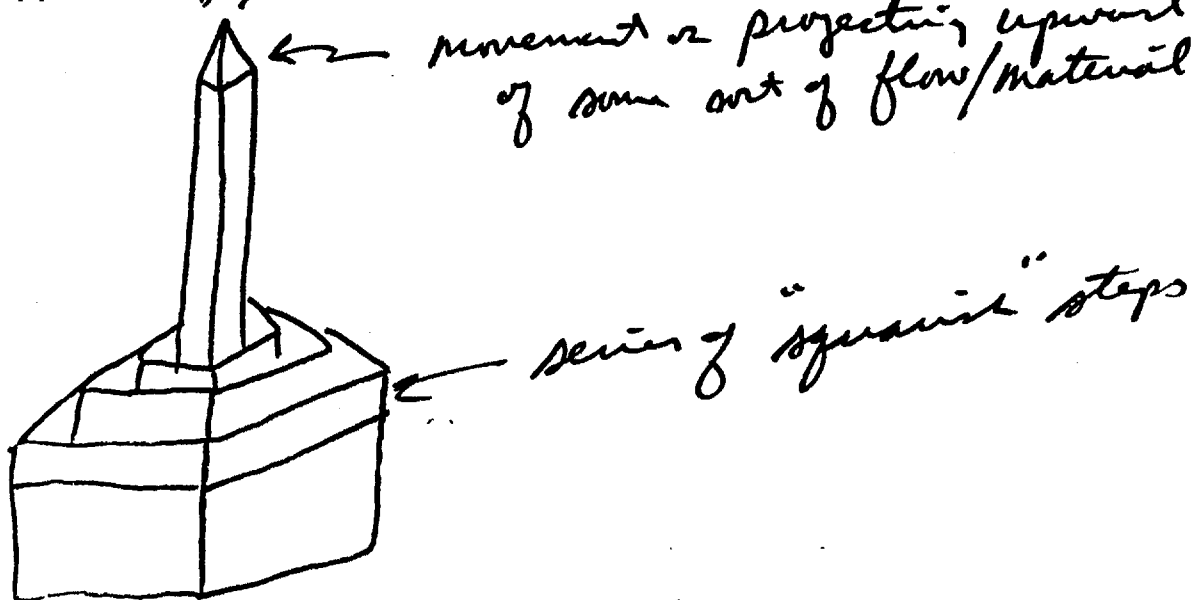 movement or projecting upward
of some sort of flow/material
series of "squarish" steps